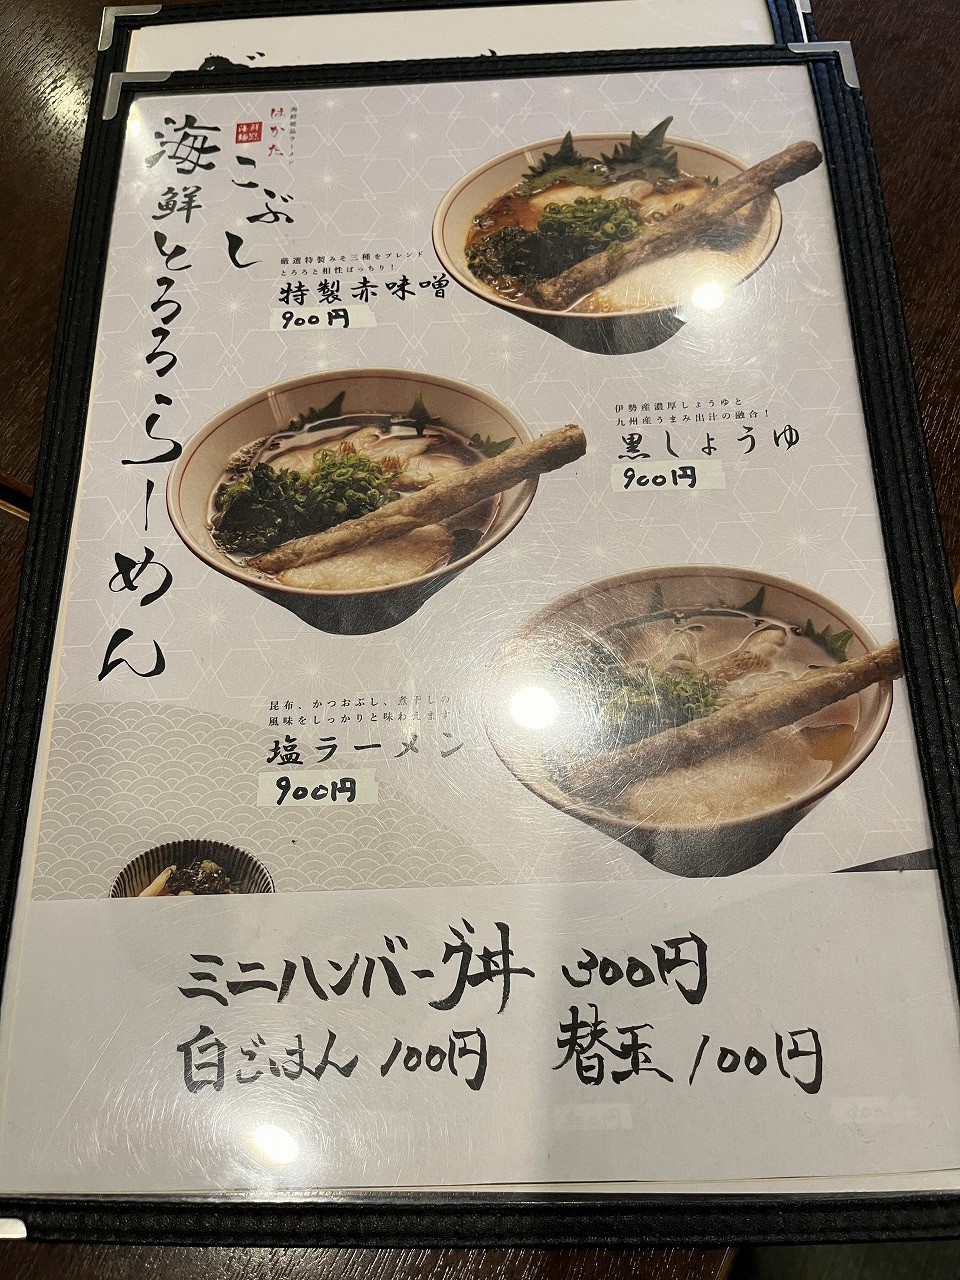 海鮮絶品ラーメン
はかた
こぶし
海鮮とろろらーめん
厳選特製みそ三種をブレンド
とろろと相性ばっちり！
特製赤味噌
900円
伊勢産濃厚しょうゆと
九州産うまみ出汁の融合！
黒しょうゆ
900円
昆布、かつおぶし、煮干しの
風味をしっかりと味わえます
塩ラーメン
900円
ミニハンバーグ丼 300円
白ごはん 100円 替玉 100円